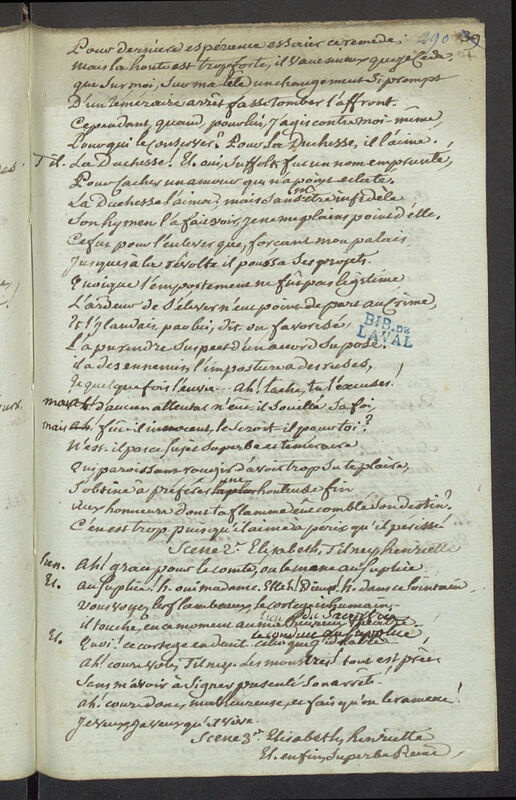 290 39
Pour derniere espérance essaier ce remede,
Mais la honte est trop forte, il vaut mieux que je cede,
que sur moi, sur ma tête un changement si prompt
D'un téméraire arrêt fasse tomber l'affront.
Cependant, quand, pour lui, j'agis contre moi-même,
Pour qui le conserver? Pour la Duchesse, il l'aime.
Til. La Duchesse! El. oui, Suffolk fut un nom emprunté,
Pour cacher un amour qui n'a point éclaté.
La Duchesse l'aima, mais sans m'être infidèle
Son hymen l'a fait voir, je ne me plains point d'elle.
Ce fut pour l'enlever que, forçant mon palais,
Jusques à la révolte il poussa ses projets.
Quoique l'emportement ne fût pas légitime
L'ardeur de s'élever n'eut point de part au crime,
Et l'Irlandais, par lui, dit on favorisé,
L'a pu rendre suspect d'un accord supposé.
il a des ennemis, l'imposture a des ruses,
Et quelquefois l'envie... Ah! lache, tu l'excuses!
mais d'aucun attentat n'eut il souillé sa foi,
mais fut-il innocent, le seroit-il pour toi?
N'est-il pas ce sujet superbe et téméraire
Qui paroissant rougir d'avoir trop su te plaire,
S'obstine à préférer une honteuse fin
Aux honneurs dont ta flamme eut comblé son destin?
C'en est trop, puisqu'il aime à périr qu'il périsse
Scene 2e. Elisabeth, Tilney, henriette
hen. Ah! grace pour le comte, on le mene au suplice.
El. au suplice! h. oui madame. El. Dieux! h. dans ce
vous voyez les flambeaux, le cortege inhumain,
il touche, en ce moment au
le conduit au supplice
El. Quoi! ce cortege
Ah! courez, volez, Tilney. Les monstres! tout est prêt
Sans m'avoir à signer présenté son arrêt.
ah! courez donc, malheureuse, et fais qu'on le ramene!
Je veux, je veux qu'il vive.
Scene 3e. Elisabeth, henriette
El. enfin, superbe Reine,
BIB. DE
LAVAL